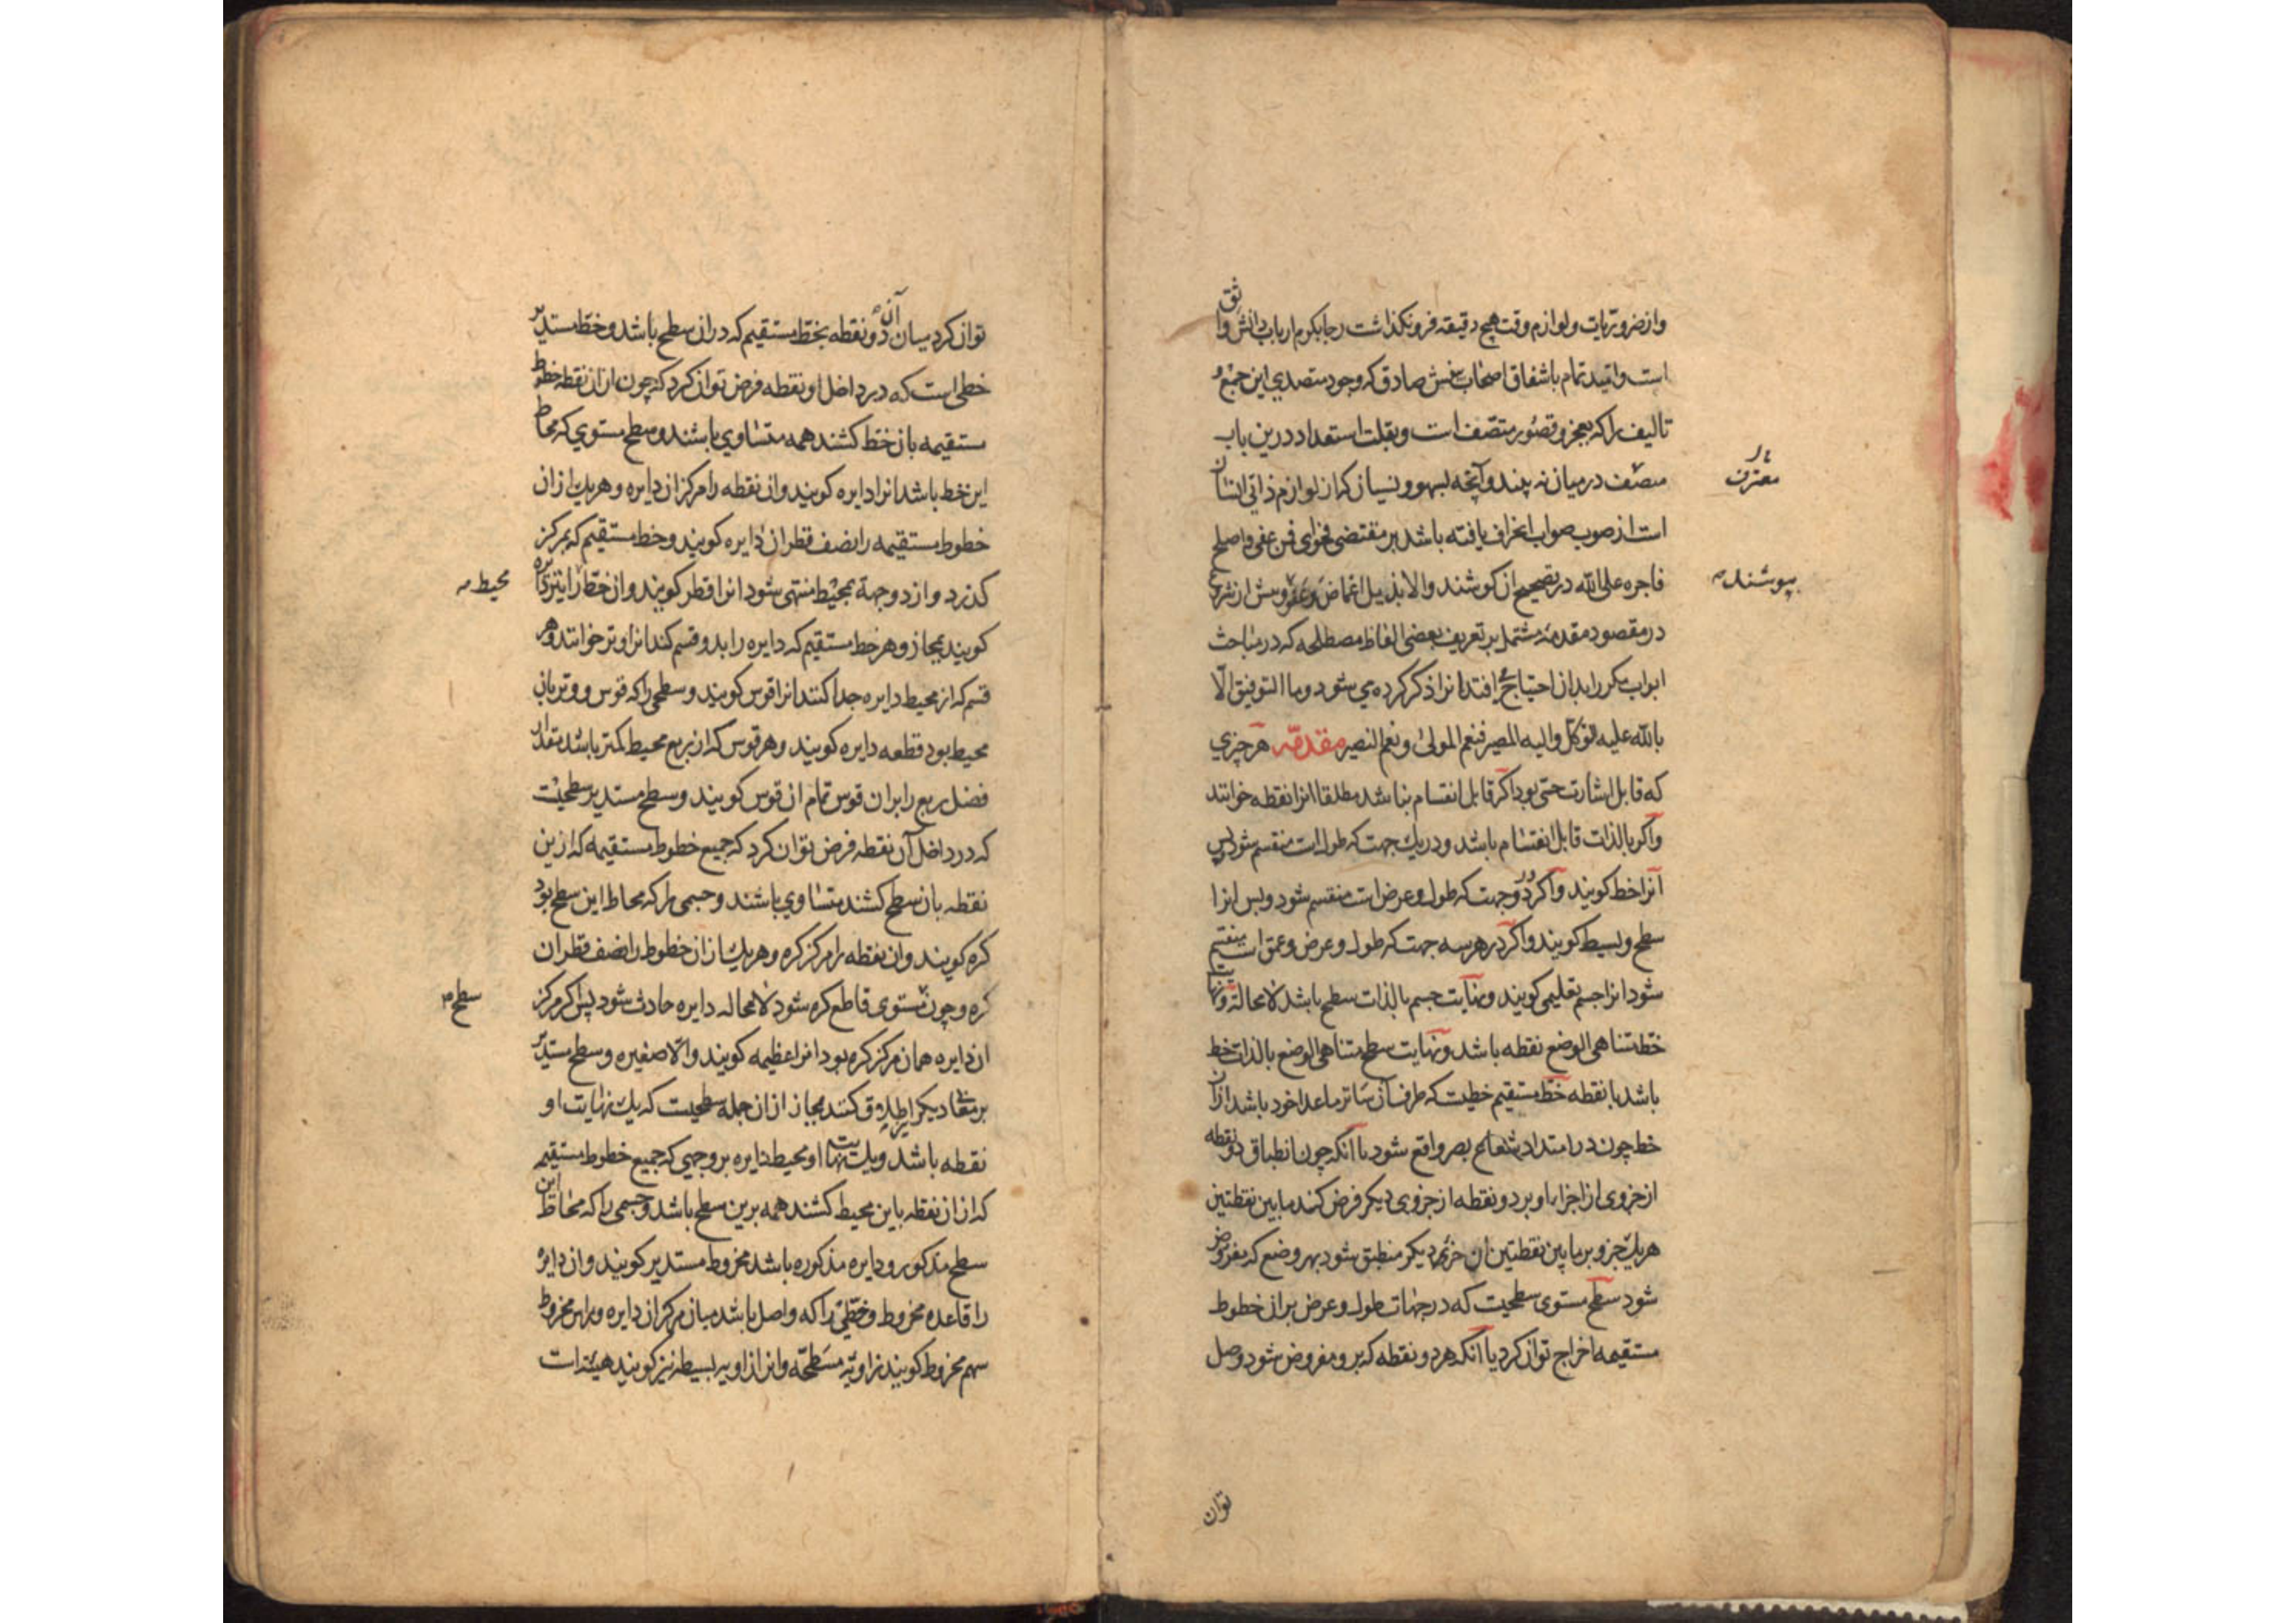 وازضروریات ولوازم وقت هیچ دقیقه فرونکذاشت رجا بکرم ارباب دانش واثق
است وامید تمام باشفاق اصحاب بینش صادق که وجود متصدی این جمع و
تالیف را که بعجز و قصور متصف است و بقلت استعداد درین باب
معترف
منصف درمیان نه بینند وآنچه بسهو و نسیان که از لوازم ذاتی انسان
است از صوب صواب انحراف یافته باشد بر مقتضی فحوای فمن عفی واصلح
فاجره علی الله در تصحیح آن کوشند والا بذیل اغماض وعفو پیش از شروع
بپوشند
درمقصود مقدمه مشتمل بر تعریف بعضی الفاظ مصطلحه که در مباحث
ابواب مکرر بدان احتیاج افتد انرا ذکر کرده می شود وما التوفیق الا
بالله علیه التوکل والیه المصیر فنعم المولی ونعم النصیر مقدمه هرچیزی
که قابل اشارت حسی بود اکر قابل انقسام نباشد مطلقا انرا نقطه خوانند
واکر بالذات قابل انقسام باشد ودر یك جهت که طول است منقسم شود وبس
آنرا خط کویند واکر در دو جهت که طول وعرض است منقسم شود وبس انرا
سطح وبسیط کویند واکر در هر سه جهت که طول وعرض وعمق است منقسم
شود انرا جسم تعلیمی کویند ونهایت جسم بالذات سطح باشد لامحالة ونهایت
خط متناهی الوضع نقطه باشد ونهایت سطح متناهی الوضع بالذات خط
باشد یا نقطه خط مستقیم خطیست که طرف آن ساتر ماعدا خود باشد ازان
خط چون در امتداد شعاع بصر واقع شود یا آنکه چون انطباق دو نقطه
از جزوی از اجزاء او بر دو نقطه از جزوی دیکر فرض کنند مابین نقطتین
هریك جزو بر مابین نقطتین ان جزو دیکر منطبق شود بهر وضع که مفروض
شود سطح مستوی سطحیست که در جهات طول وعرض بران خطوط
مستقیمه اخراج توان کرد یا آنکه هر دو نقطه که برو مفروض شود وصل
توان
توان کرد میان آن دو نقطه بخط مستقیم که دران سطح باشد وخط مستدیر
خطی است که در داخل او نقطه فرض توان کرد که چون ازان نقطه خطوط
مستقیمه بان خط کشند همه متساوی باشند وسطح مستوی که محاط
این خط باشد انرا دایره کویند وان نقطه را مرکز ان دایره وهریك ازان
خطوط مستقیمه را نصف قطر ان دایره کویند وخط مستقیم که بمرکز
کذرد واز دو جهة بمحیط منتهی شود انرا قطر کویند وان خط را نیز دایره
محیط
کویند بمجاز وهر خط مستقیم که دایره را بدو قسم کند انرا وتر خوانند وهر
قسم که از محیط دایره جدا کنند انرا قوس کویند وسطحی را که قوس ووتر بان
محیط بود قطعه دایره کویند وهر قوس که از ربع محیط کمتر باشد مقدار
فضل ربع را بران قوس تمام ان قوس کویند وسطح مستدیر سطحیست
که در داخل آن نقطه فرض توان کرد که جمیع خطوط مستقیمه که ازین
نقطه بان سطح کشند متساوی باشند وجسمی را که محاط این سطح بود
کره کویند وان نقطه را مرکز کره وهریك ازان خطوط را نصف قطر ان
کره وچون مستوی قاطع کره شود لامحاله دایره حادث شود پس اکر مرکز
سطح
ان دایره همان مرکز کره بود انرا عظیمه کویند والا صغیره وسطح مستدیر
بر معانی دیکر اطلاق کنند مجاز ازان جمله سطحیست که یك نهایت او
نقطه باشد ویك نهایت او محیط دایره بروجهی که جمیع خطوط مستقیم
که ازان نقطه باین محیط کشند همه برین سطح باشد وجسمی را که محاط این
سطح مذکور ودایره مذکوره باشد مخروط مستدیر کویند وان دایره
را قاعده مخروط وخطی را که واصل باشد میان مرکز ان دایره وراس مخروط
سهم مخروط کویند زاویه مسطحه وانرا زاویه بسیطه نیز کویند هیئت است